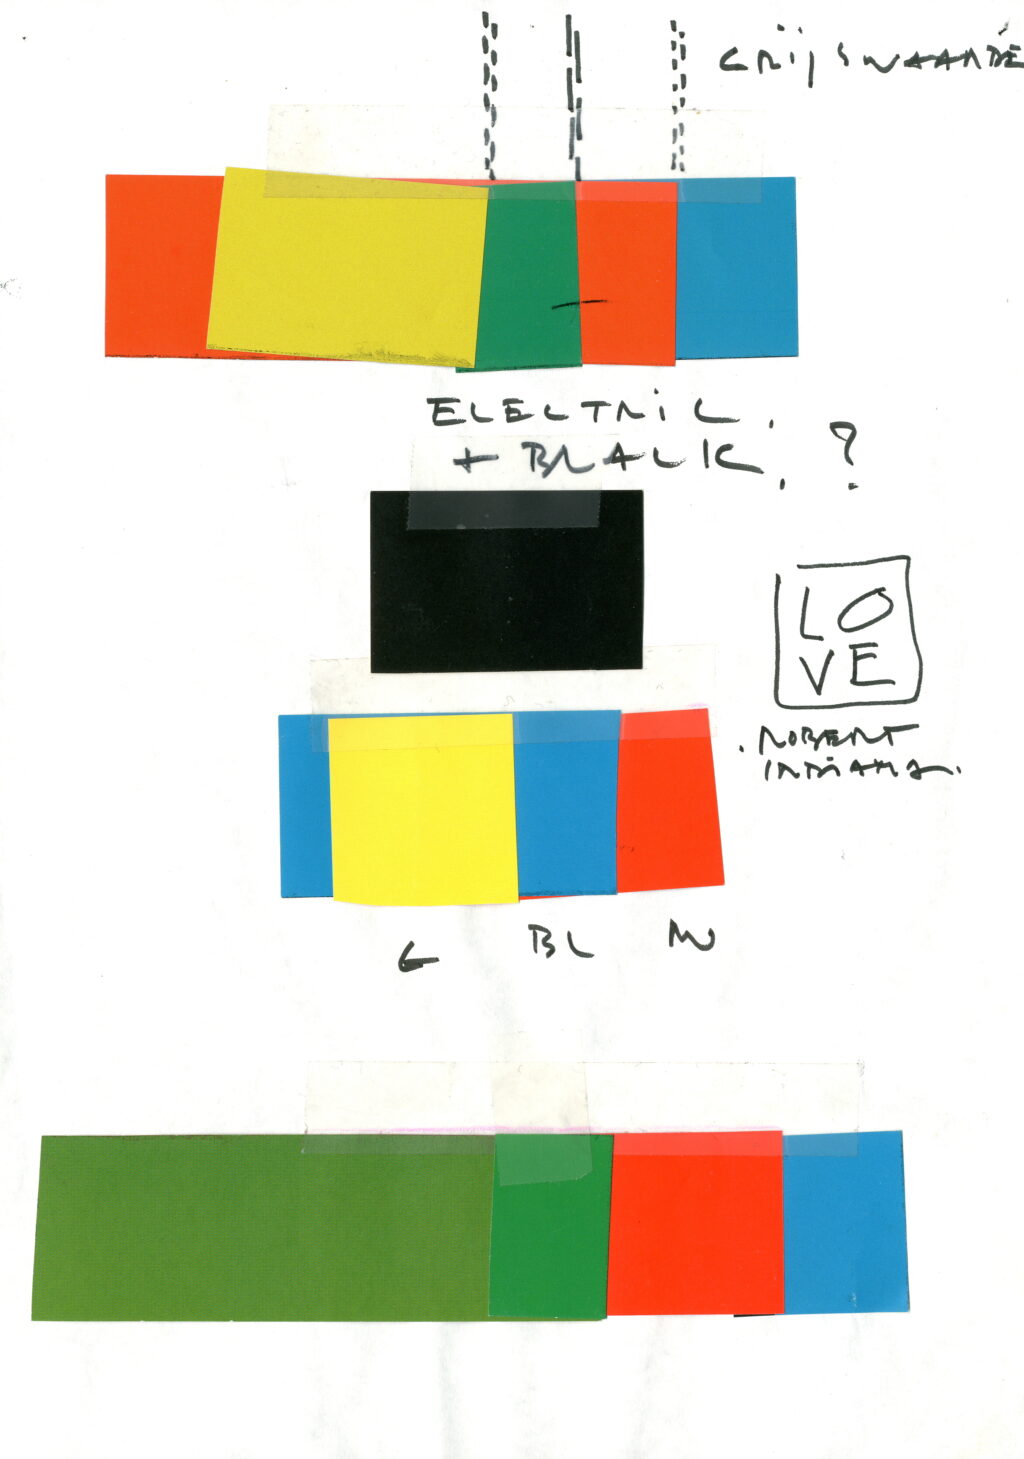 GRIJSWAARDE
ELECTRIC.
+ BLACK. ?
LO
VE
. ROBERT
INDIANA.
G BL